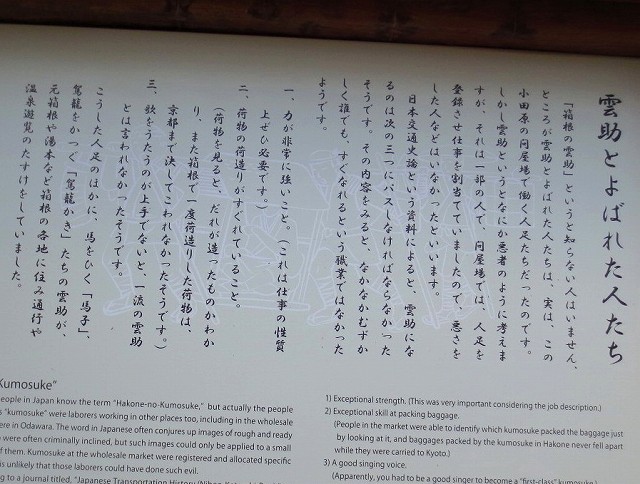 雲助とよばれた人たち
「箱根の雲助」というと知らない人はいません、
ところが雲助とよばれた人たちは、実は、この
小田原の問屋場で働く人足たちだったのです。
しかし雲助というとなにか悪者のように考えま
すが、それは一部の人で、問屋場では、人足を
登録させ仕事を割当てていましたので、悪さを
した人などはいなかったといいます。
日本交通史論という資料によると、雲助にな
るのは次の三つにパスしなければならなかった
そうです。その内容をみると、なかなかむずか
しく誰でも、すぐなれるという職業ではなかった
ようです。
一、力が非常に強いこと。(これは仕事の性質
上ぜひ必要です。)
二、荷物の荷造りがすぐれていること。
(荷物を見ると、だれが造ったものかわか
り、また箱根で一度荷造りした荷物は、
京都まで決してこわれなかったそうです。)
三、歌をうたうのが上手でないと、一流の雲助
とは言われなかったそうです。
こうした人足のほかに、馬をひく「馬子」、
駕籠をかつぐ「駕籠かき」たちの雲助が、
元箱根や湯本など箱根の各地に住み通行や
温泉遊覧のたすけをしていました。
Kumosuke"
people in Japan know the term "Hakone-no-Kumosuke," but actually the people
"kumosuke" were laborers working in other places too, including in the wholesale
ere in Odawara. The word in Japanese often conjures up images of rough and ready
were often criminally inclined, but such images could only be applied to a small
of them. Kumosuke at the wholesale market were registered and allocated specific
is unlikely that those laborers could have done such evil.
ng to a journal titled, "Japanese Transportation History
1) Exceptional strength. (This was very important considering the job description.)
2) Exceptional skill at packing baggage.
(People in the market were able to identify which kumosuke packed the baggage just
by looking at it, and baggages packed by the kumosuke in Hakone never fell apart
while they were carried to Kyoto.)
3) A good singing voice.
(Apparently, you had to be a good singer to become a "first-class" kumosuke.)